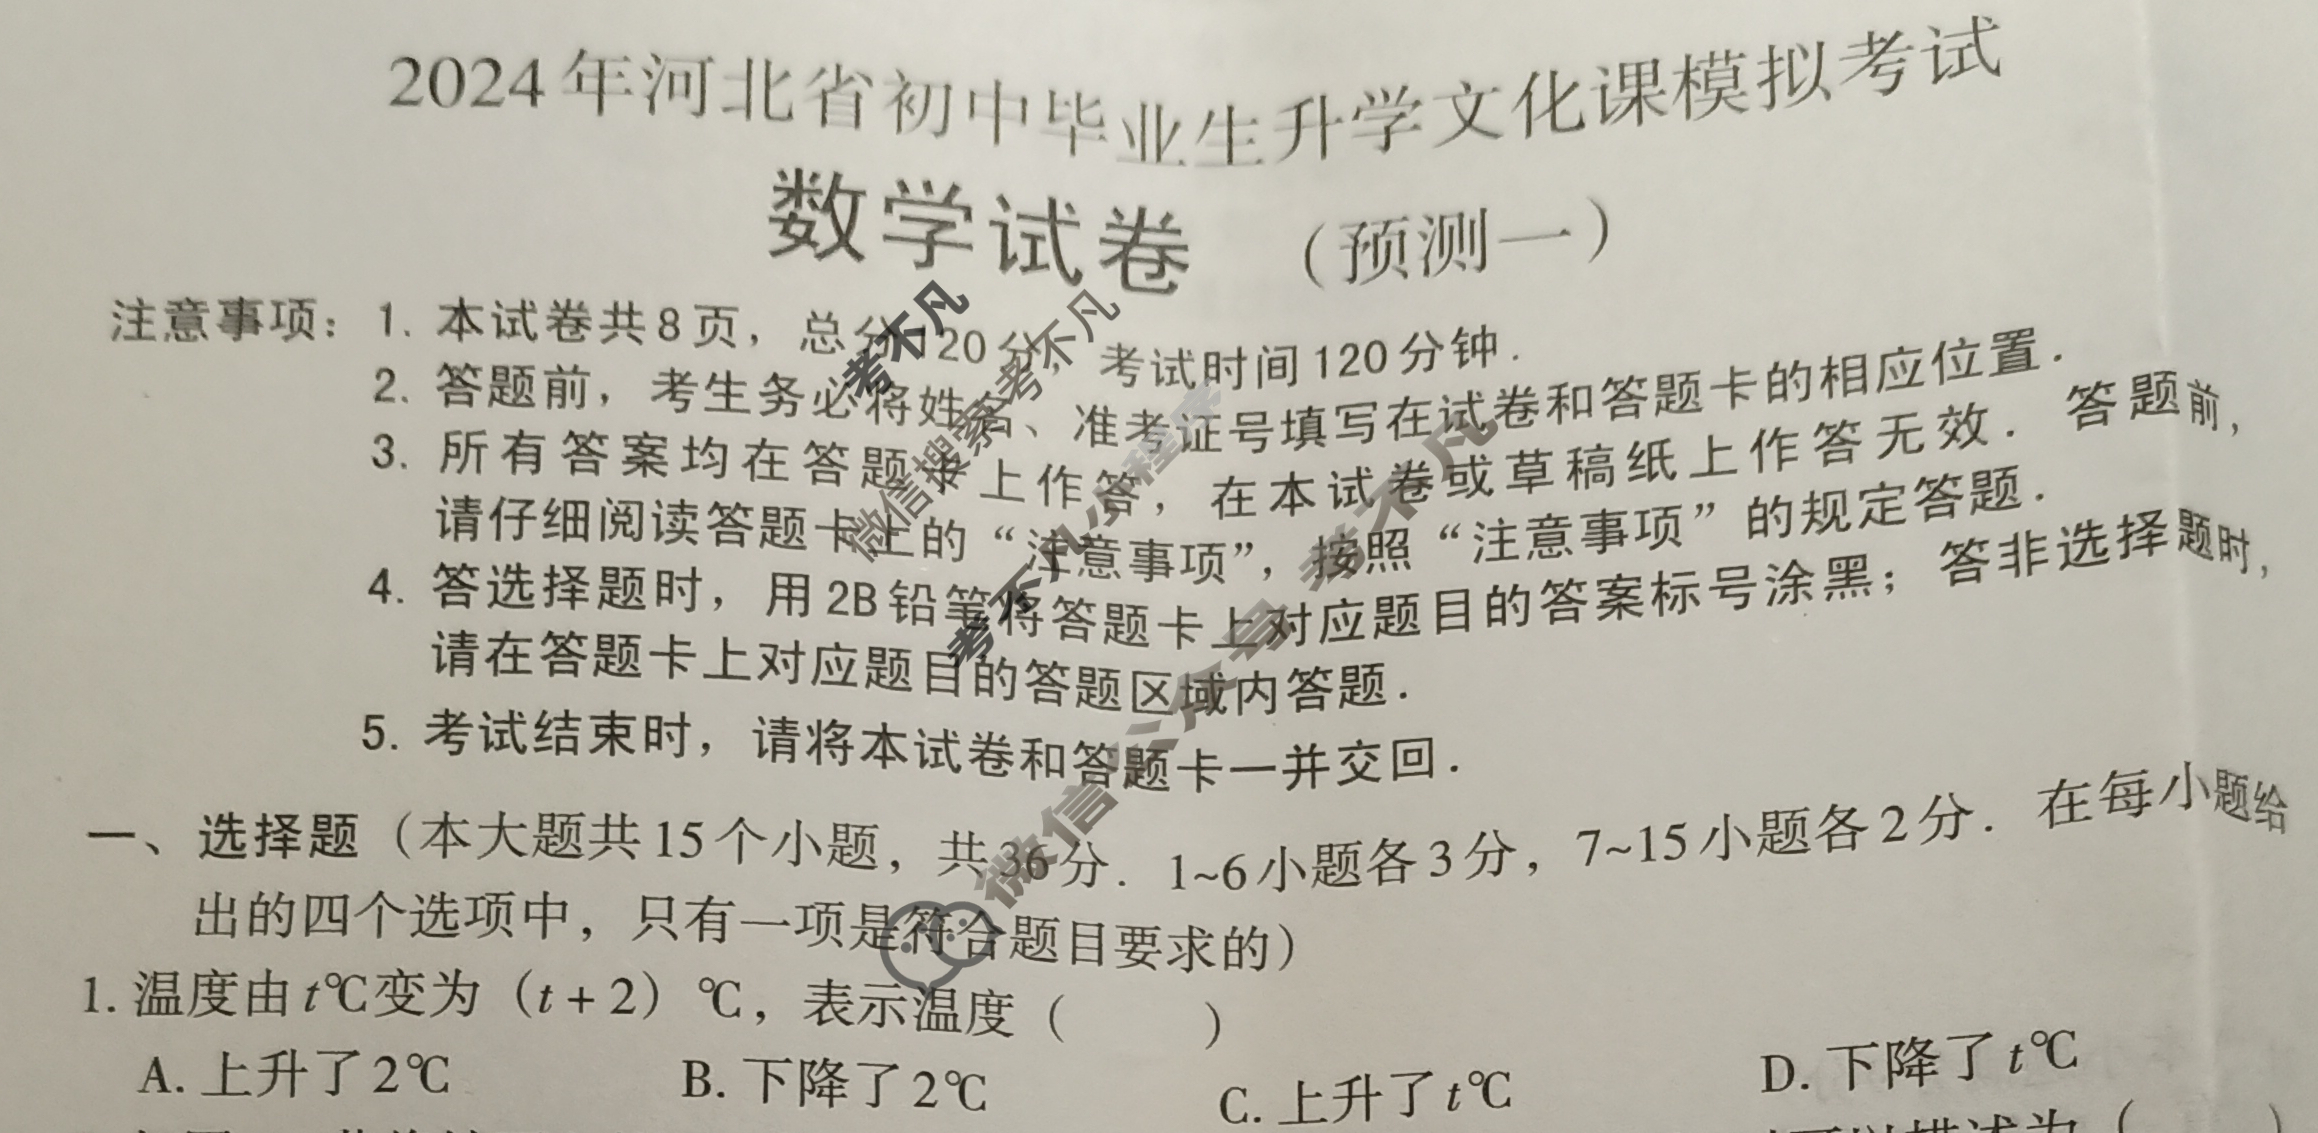 2024年河北省初中毕业生升学文化课模拟考试
数学试卷 (预测一)
注意事项: 1. 本试卷共8页, 总分120分, 考试时间120分钟.
2. 答题前, 考生务必将姓名、准考证号填写在试卷和答题卡的相应位置.
3. 所有答案均在答题卡上作答, 在本试卷或草稿纸上作答无效. 答题前,
请仔细阅读答题卡上的“注意事项”, 按照“注意事项”的规定答题.
4. 答选择题时, 用2B铅笔将答题卡上对应题目的答案标号涂黑; 答非选择题时,
请在答题卡上对应题目的答题区域内答题.
5. 考试结束时, 请将本试卷和答题卡一并交回.
一、选择题 (本大题共15个小题, 共36分. 1~6小题各3分, 7~15小题各2分. 在每小题给
出的四个选项中, 只有一项是符合题目要求的)
1. 温度由t℃变为 (t + 2) ℃, 表示温度 ( )
A. 上升了2℃ B. 下降了2℃ C. 上升了t℃ D. 下降了t℃
考不凡
微信搜索考不凡
考不凡小程序
微信公众号 考不凡